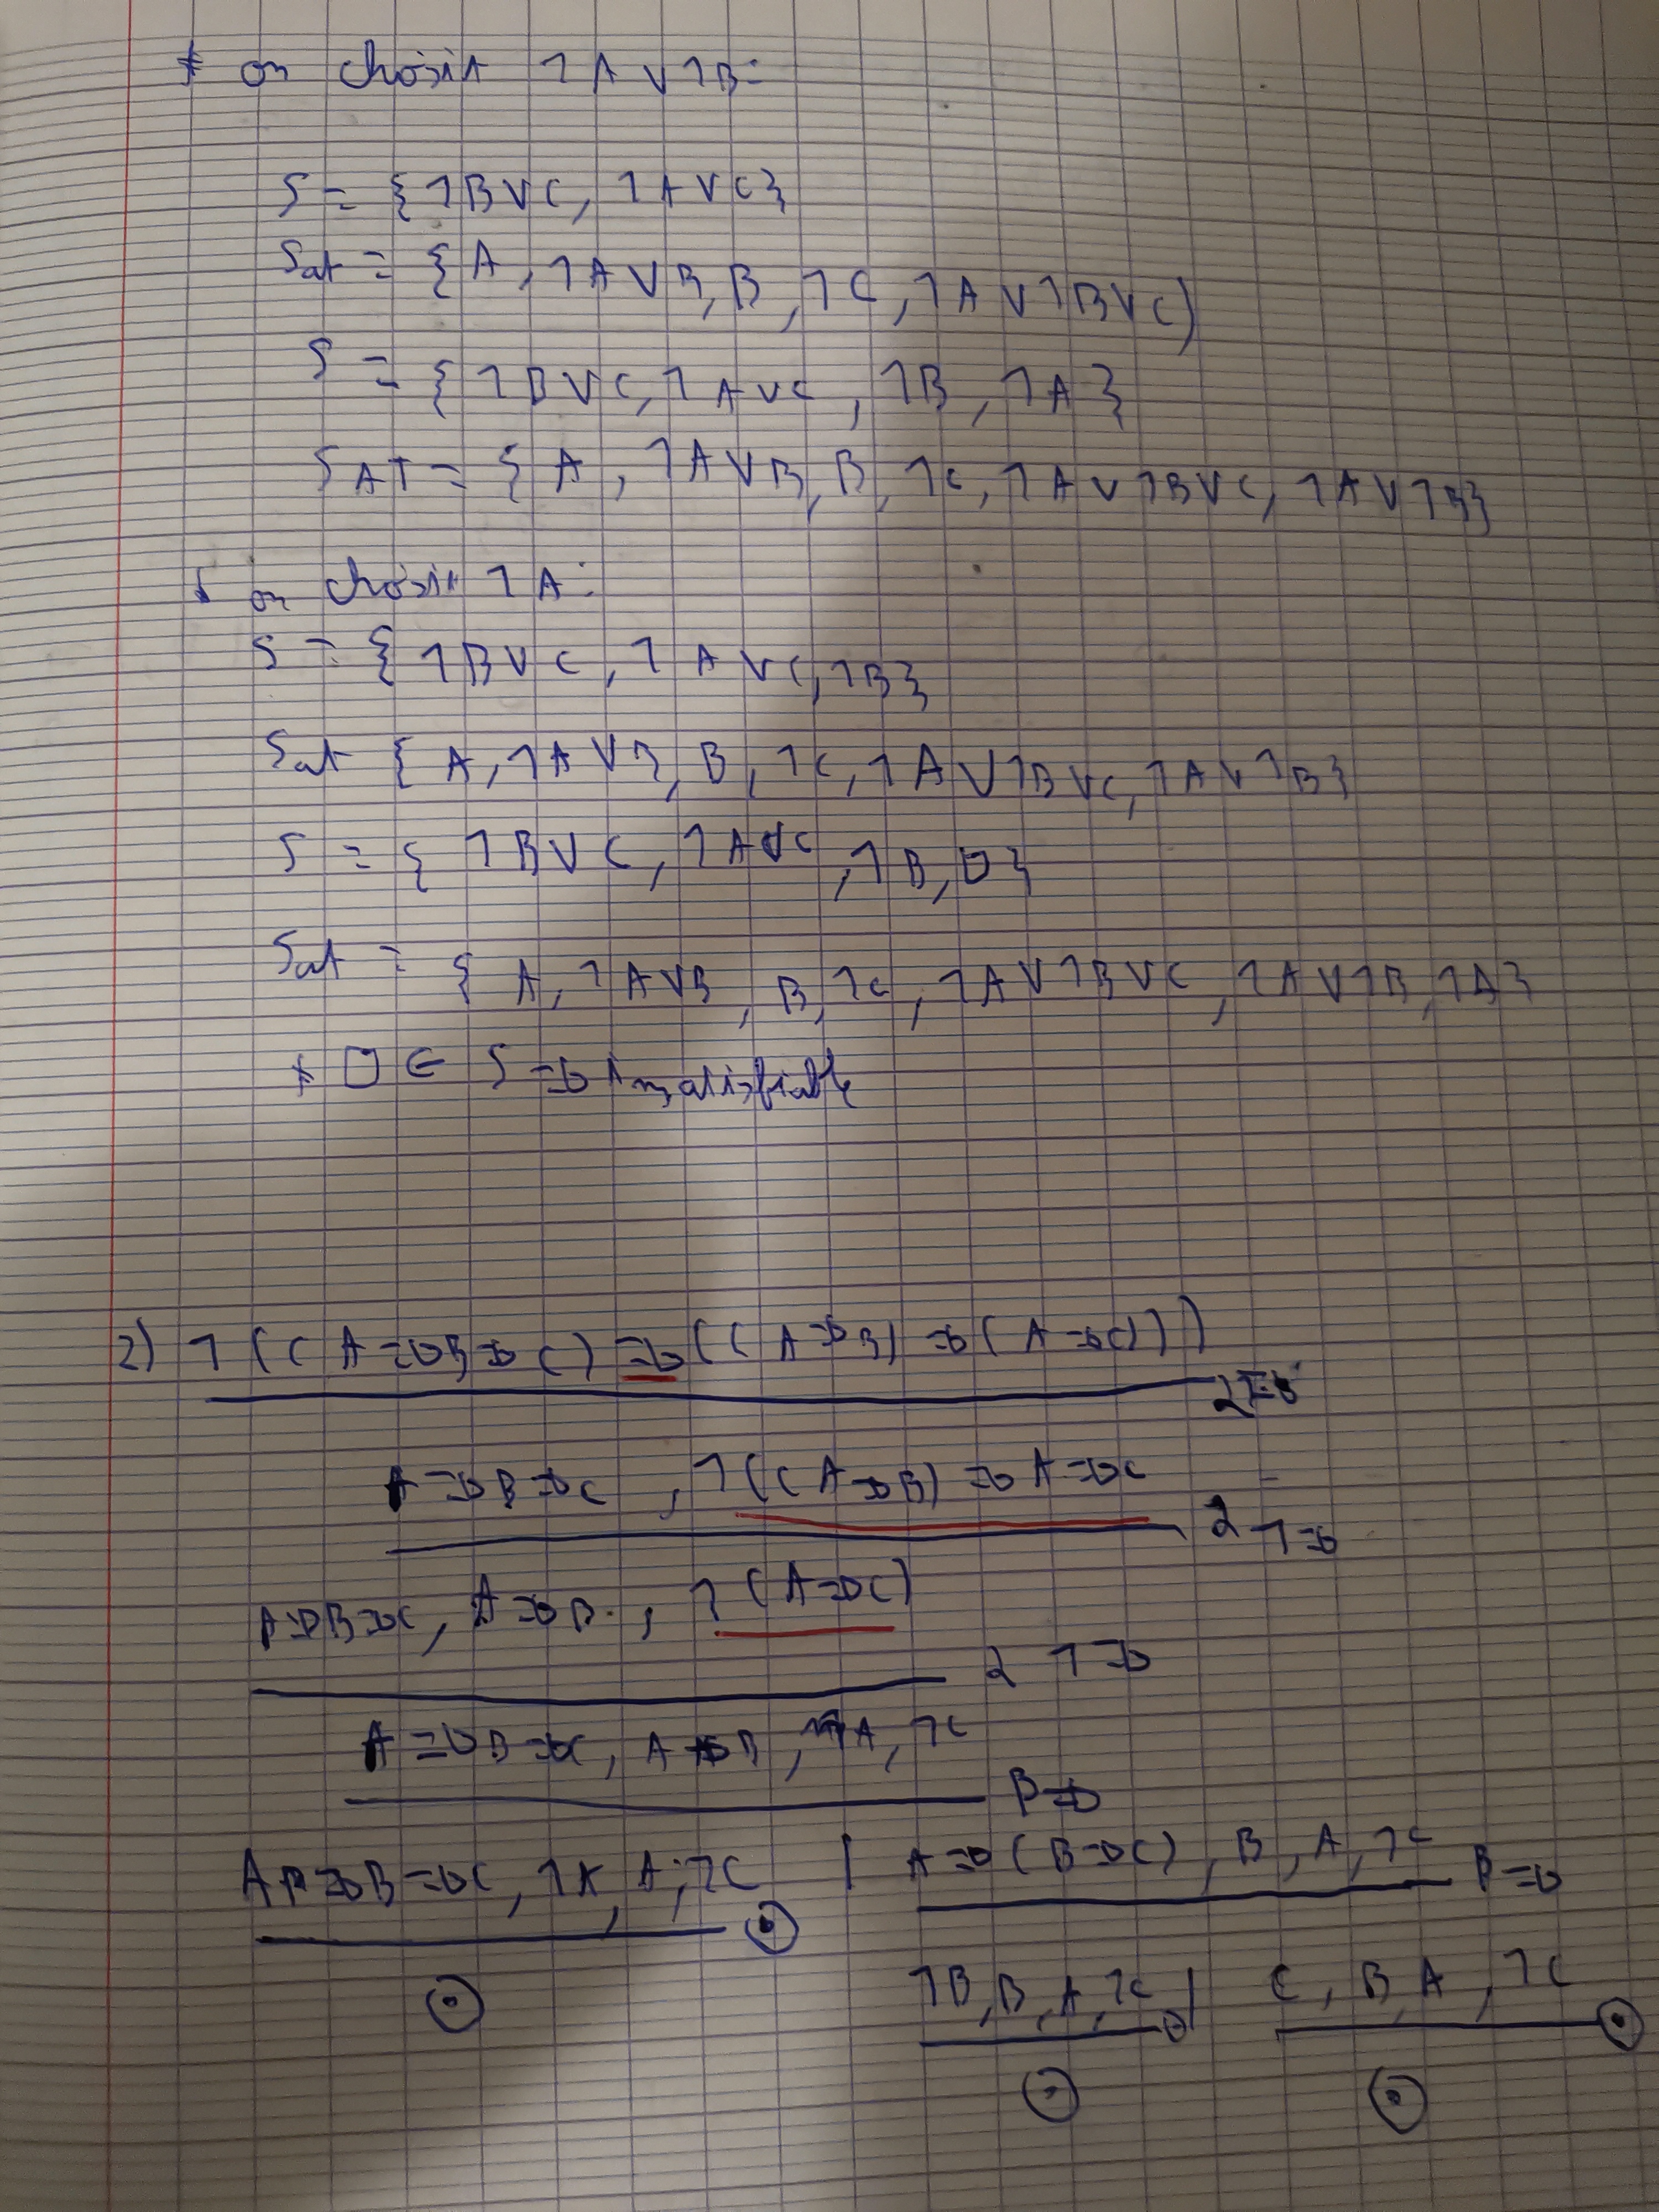 * on choisit ¬A ∨ ¬B :
S = {¬B ∨ C, ¬A ∨ C}
Sat = {A, ¬A ∨ B, B, ¬C, ¬A ∨ ¬B ∨ C)
S = {¬B ∨ C, ¬A ∨ C, ¬B, ¬A}
SAT = {A, ¬A ∨ B, B, ¬C, ¬A ∨ ¬B ∨ C, ¬A ∨ ¬B}
* on choisit ¬A :
S = {¬B ∨ C, ¬A ∨ C, ¬B}
Sat {A, ¬A ∨ B, B, ¬C, ¬A ∨ ¬B ∨ C, ¬A ∨ ¬B}
S = {¬B ∨ C, ¬A ∨ C, ¬B, □}
Sat = {A, ¬A ∨ B, B, ¬C, ¬A ∨ ¬B ∨ C, ¬A ∨ ¬B, ¬A}
* □ ∈ S ⇒ insatisfiable
2) ¬((A ⇒ B ⇒ C) ⇒ ((A ⇒ B) ⇒ (A ⇒ C)))
A ⇒ B ⇒ C, ¬((A ⇒ B) ⇒ A ⇒ C
α ¬⇒
A ⇒ B ⇒ C, A ⇒ B, ¬(A ⇒ C)
α ¬⇒
A ⇒ B ⇒ C, A ⇒ B, A, ¬C
β ⇒
A ⇒ B ⇒ C, ¬A, A, ¬C ⊙ | A ⇒ (B ⇒ C), B, A, ¬C β ⇒
⊙ ¬B, B, A, ¬C ⊙ | C, B, A, ¬C ⊙
⊙ ⊙